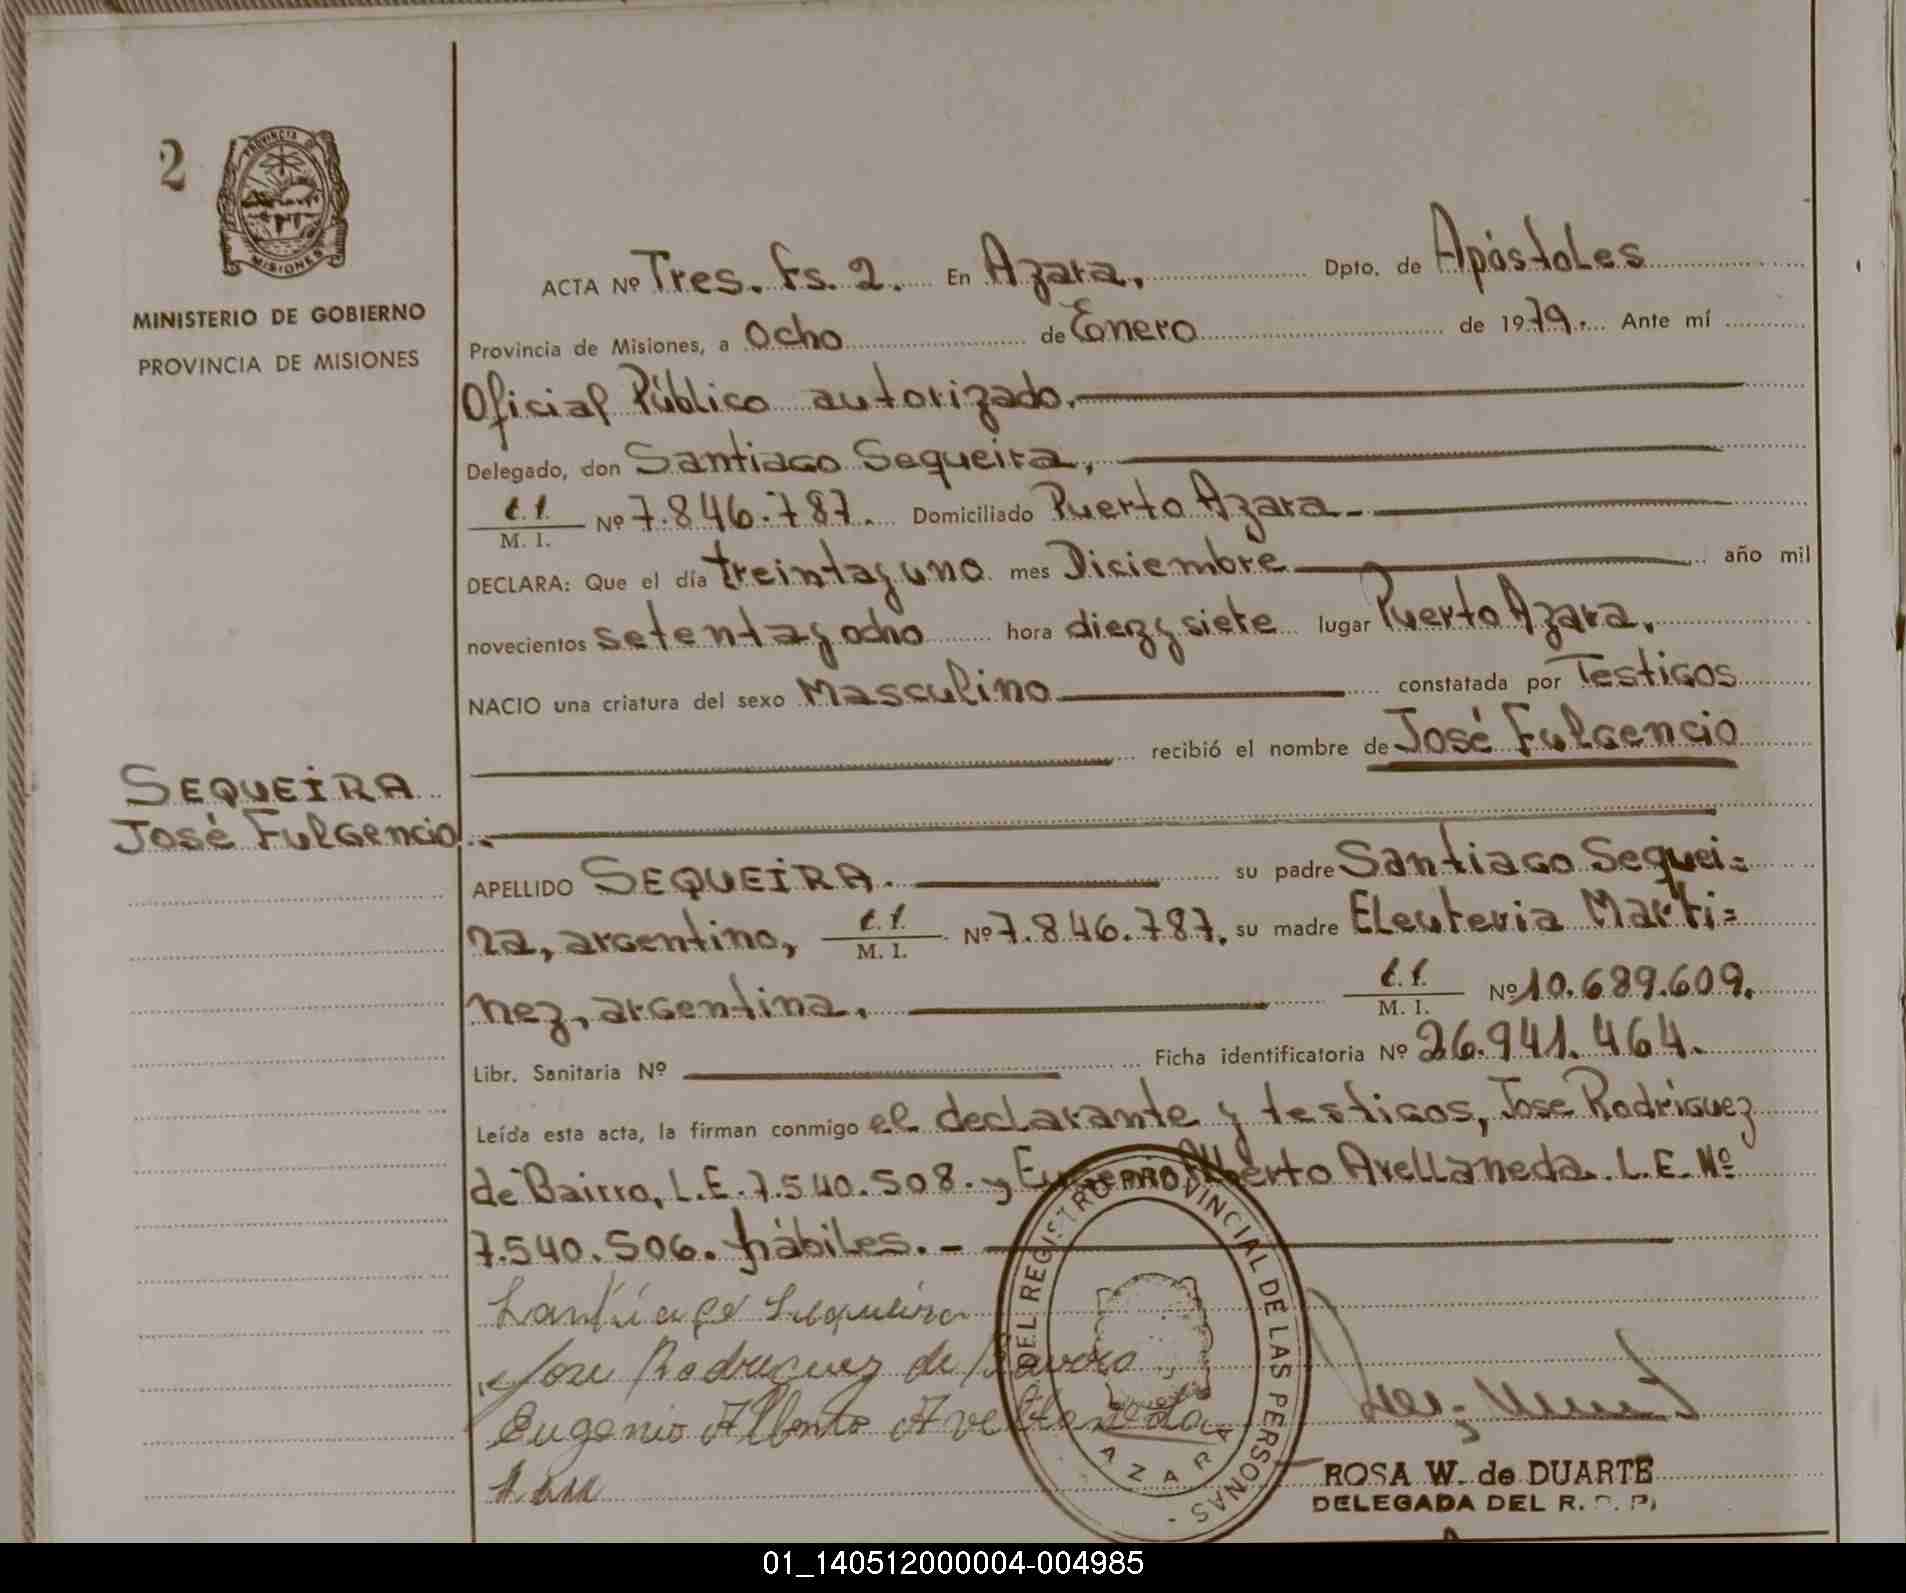 2
PROVINCIA DE
MISIONES
MINISTERIO DE GOBIERNO
PROVINCIA DE MISIONES
SEQUEIRA
José Fulgencio
ACTA Nº Tres. Fs. 2. En Azara, Dpto. de Apóstoles
Provincia de Misiones, a Ocho de Enero de 1979. Ante mí
Oficial Público autorizado.
Delegado, don Santiago Sequeira,
M. I. Nº 7.846.787. Domiciliado Puerto Azara.
DECLARA: Que el día treinta y uno mes Diciembre año mil
novecientos setenta y ocho hora diez y siete lugar Puerto Azara,
NACIO una criatura del sexo Masculino constatada por Testigos
recibió el nombre de José Fulgencio
APELLIDO SEQUEIRA. su padre Santiago Sequei=
ra, argentino, M. I. Nº 7.846.787, su madre Eleuteria Marti=
nez, argentina, M. I. Nº 10.689.609.
Libr. Sanitaria Nº Ficha identificatoria Nº 26.941.464.
Leída esta acta, la firman conmigo el declarante y testigos, Jose Rodriguez
de Bairro, L.E. 7.540.508. y Eugenio Alberto Avellaneda. L.E. Nº
7.540.506. hábiles. -
Santiago Sequeira
Jose Rodriguez de
Eugenio Alberto Avellaneda
DEL REGISTRO PROVINCIAL DE LAS PERSONAS
AZARA
ROSA W. de DUARTE
DELEGADA DEL R. P.
01_140512000004-004985